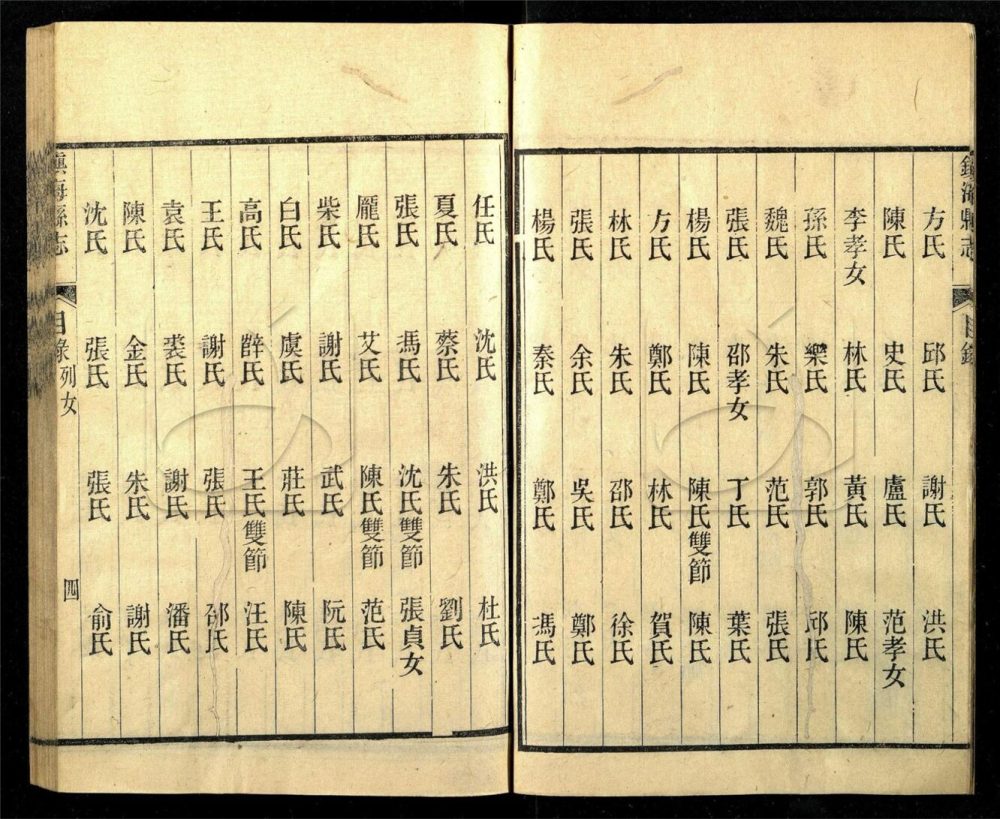 鎮海縣志
目錄
方氏 邱氏 謝氏 洪氏
陳氏 史氏 盧氏 范孝女
李孝女 林氏 黃氏 陳氏
孫氏 樂氏 郭氏 邱氏
魏氏 朱氏 范氏 張氏
張氏 邵孝女 丁氏 葉氏
楊氏 陳氏 陳氏雙節 陳氏
方氏 鄭氏 林氏 賀氏
林氏 朱氏 邵氏 徐氏
張氏 余氏 吳氏 鄭氏
楊氏 秦氏 鄭氏 馮氏
任氏 沈氏 洪氏 杜氏
夏氏 蔡氏 朱氏 劉氏
張氏 馮氏 沈氏雙節 張貞女
龐氏 艾氏 陳氏雙節 范氏
柴氏 謝氏 武氏 阮氏
白氏 虞氏 莊氏 陳氏
高氏 薛氏 王氏雙節 汪氏
王氏 謝氏 張氏 邵氏
袁氏 裘氏 謝氏 潘氏
陳氏 金氏 朱氏 謝氏
沈氏 張氏 張氏 俞氏
鎮海縣志 目錄 列女 四